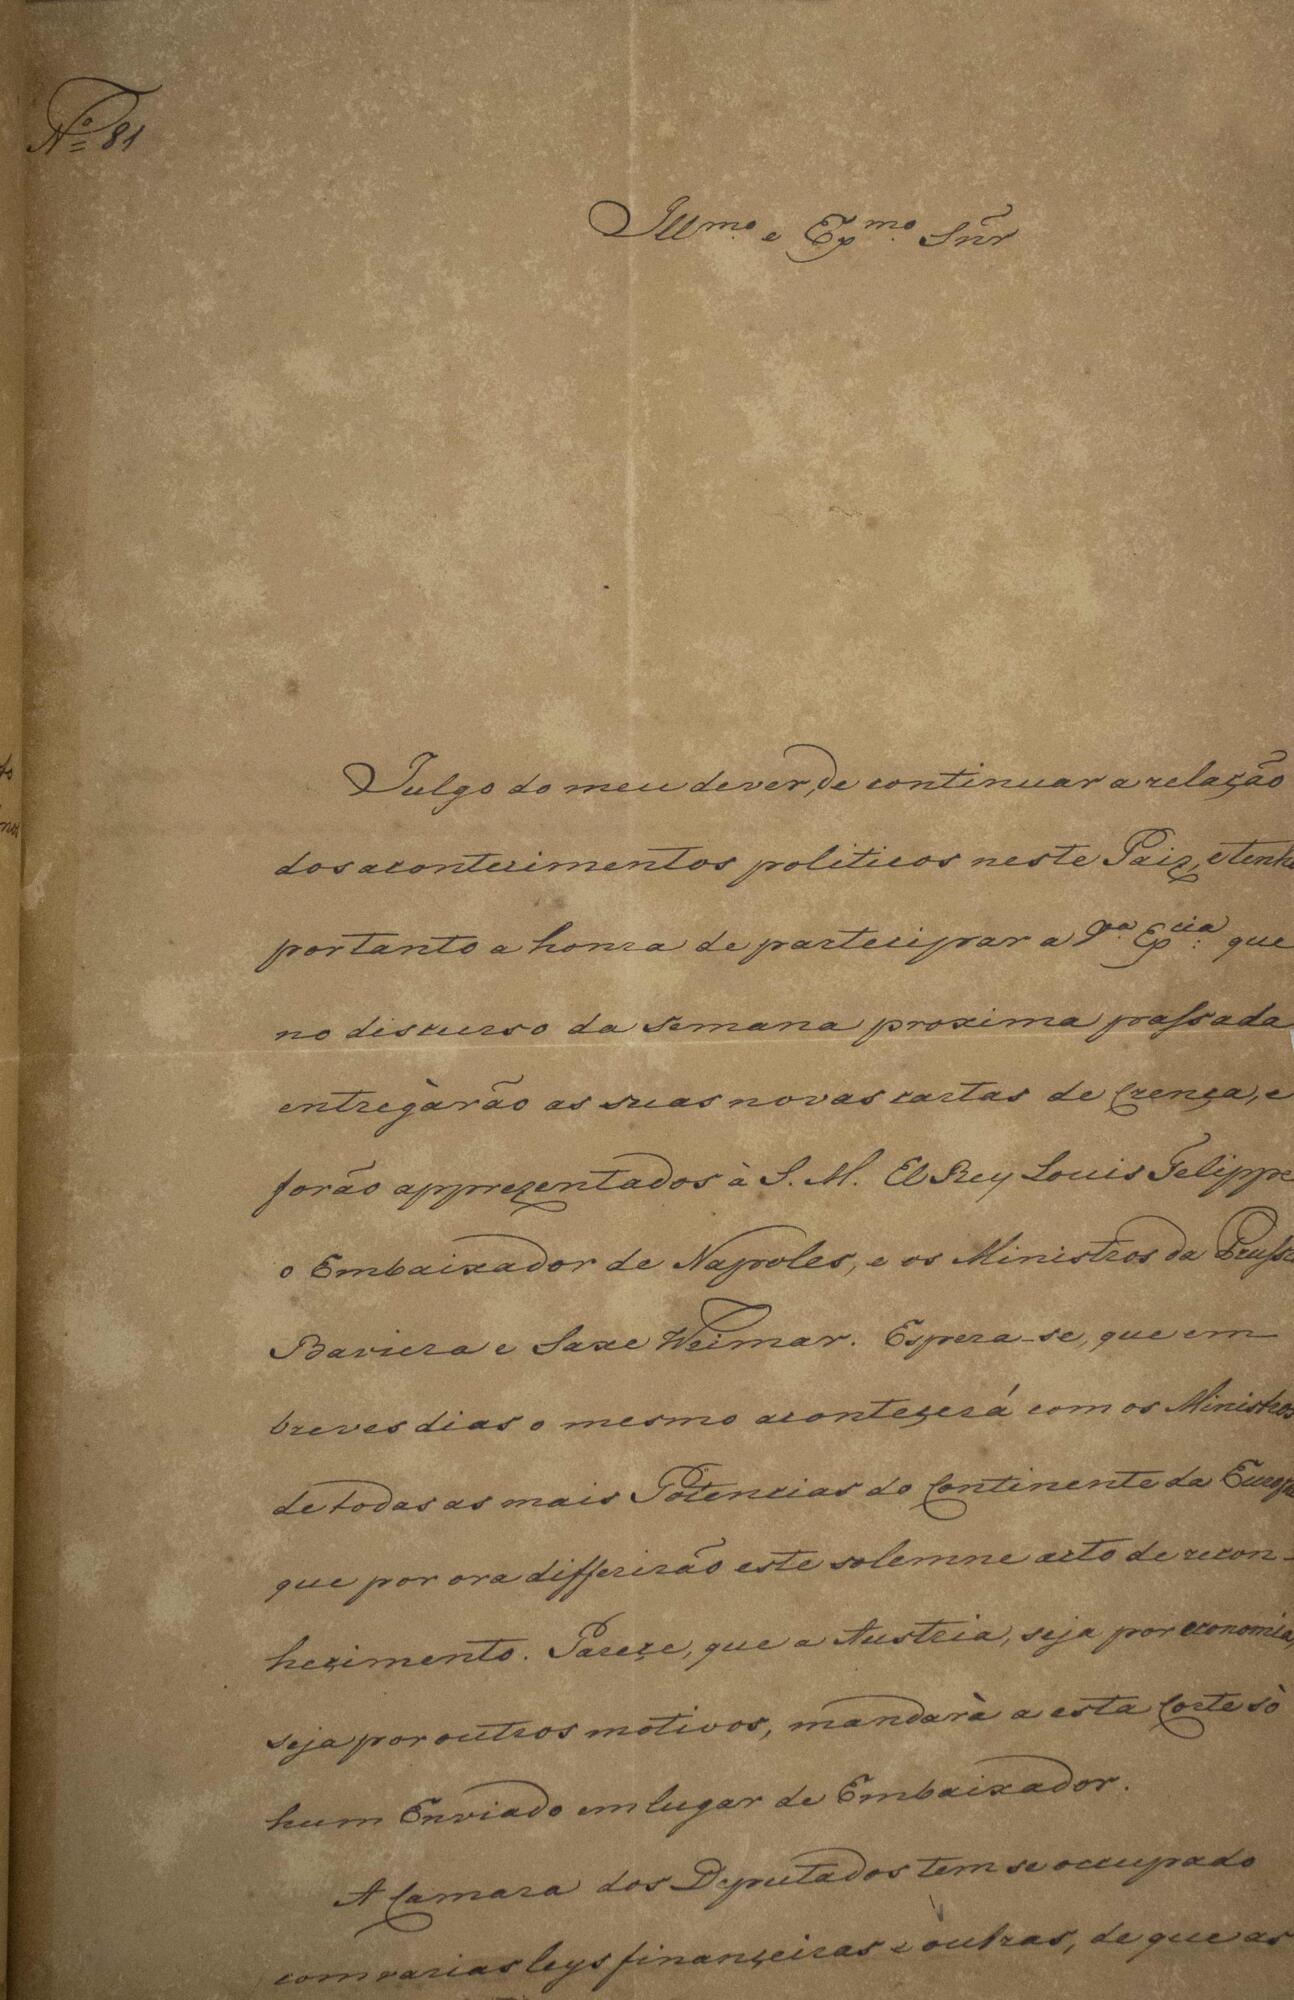 Nº 81
Illmo. e Exmo. Snr
Julgo do meu dever, de continuar a relação
dos acontecimentos politicos neste Paiz, e tenho
portanto a honra de partecipar a Va. Excia. que
no discurso da semana proxima passada
entregàrão as suas novas cartas de Crença, e
forão apprezentados à S. M. El Rey Louis Felippe
o Embaixador de Napoles, e os Ministros da Prussia
Baviera e Saxe Weimar. Espera-se, que em
breves dias o mesmo aconteçerá com os Ministros
de todas as mais Potencias do Continente da Europa
que por ora differirão este solemne acto de recon-
heçimento. Pareçe, que a Austria, seja por economia,
seja por outros motivos, mandarà a esta Corte sò
hum Enviado em lugar de Embaixador.
A Camara dos Deputados tem se occupado
com varias leys finançeiras e outras, de que as